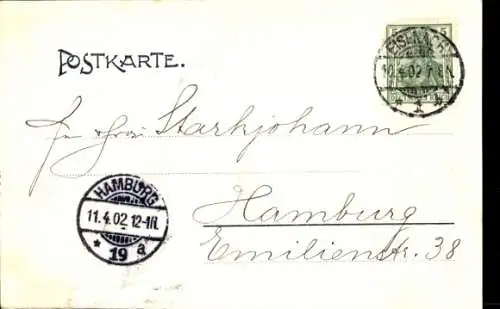 POSTKARTE.
5 5
EISENACH
10.4.02 7-8N.
* 1 *
Starkjohann
HAMBURG
11.4.02 12-1N.
* 19 a
Hamburg
Emilienstr. 38